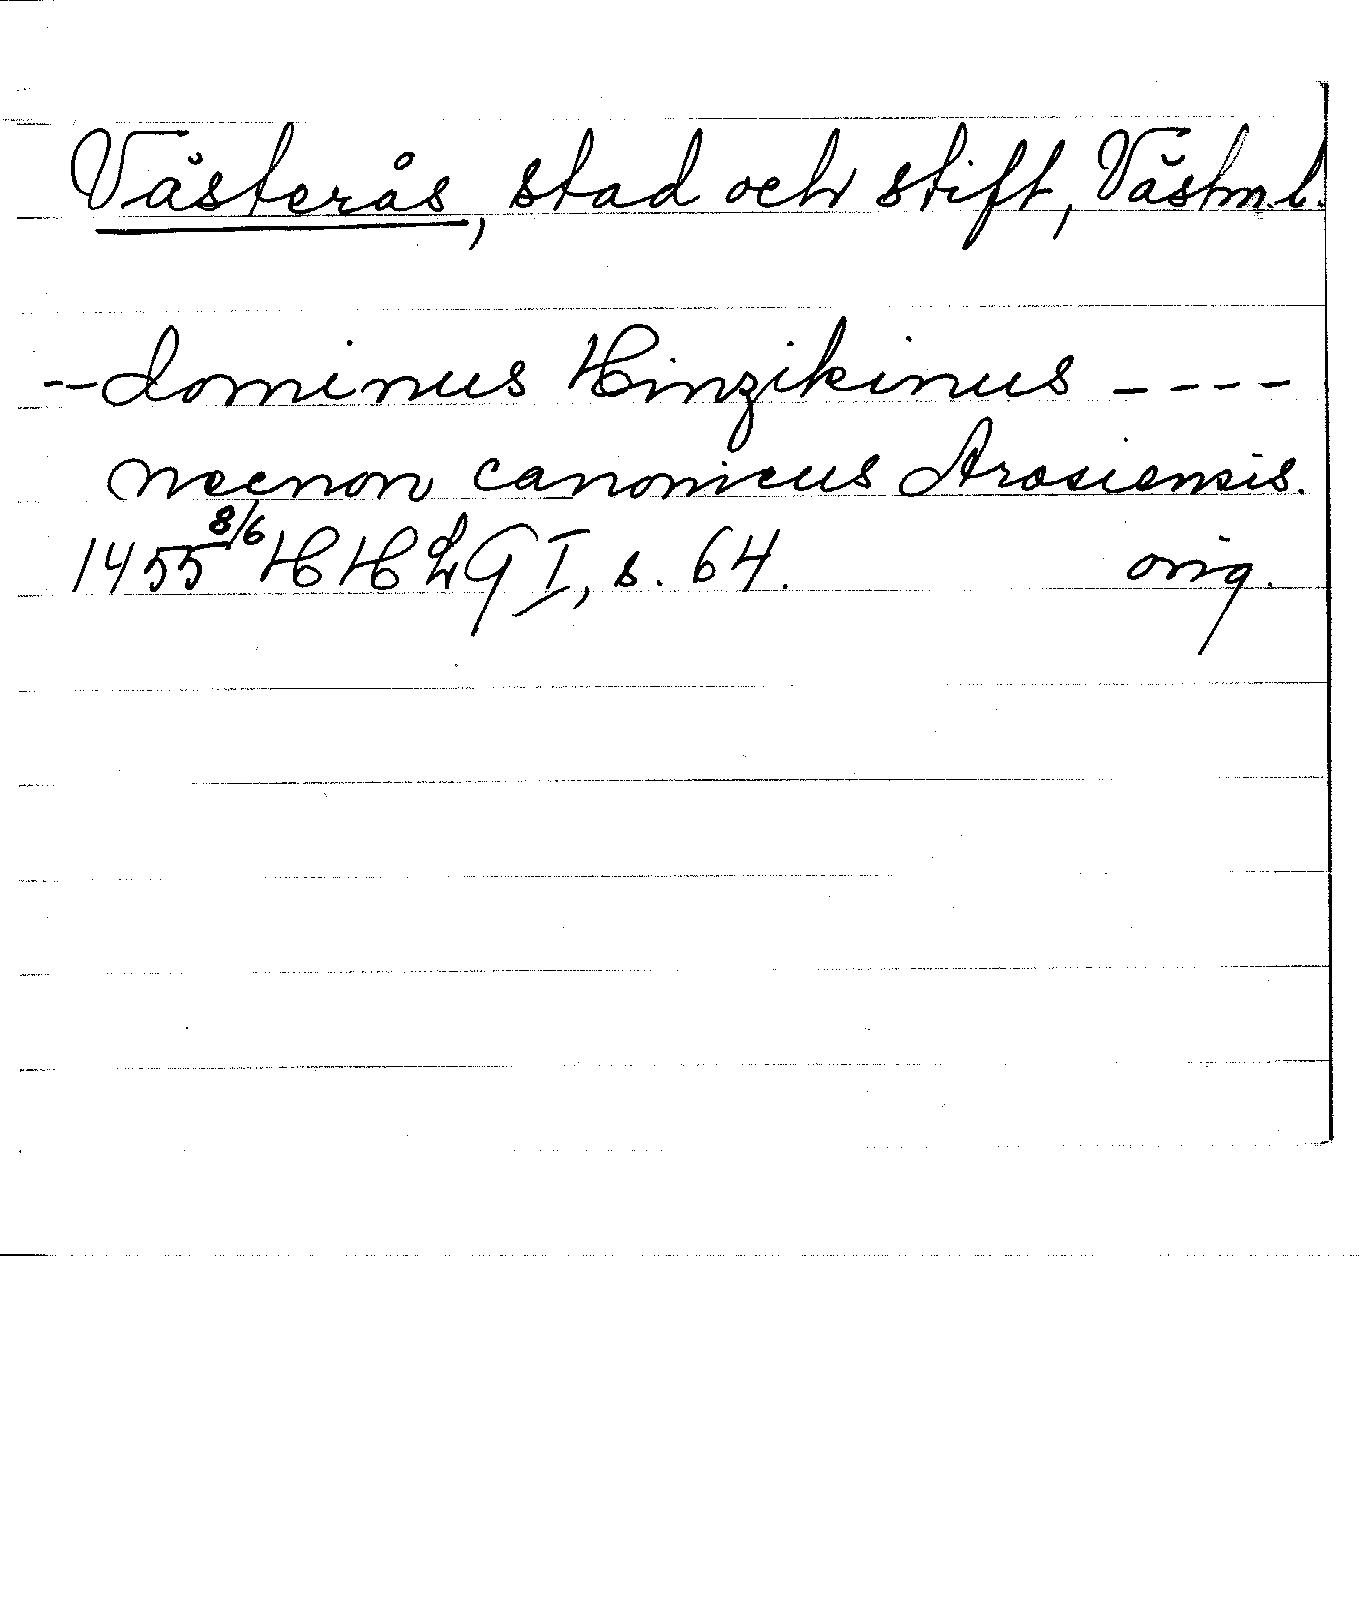 Västerås, stad och stift, Västm.l.
-- dominus Hinzikinus ----
necnon canonicus Arosiensis.
1455 8/6 HHLG I, s. 64. orig.